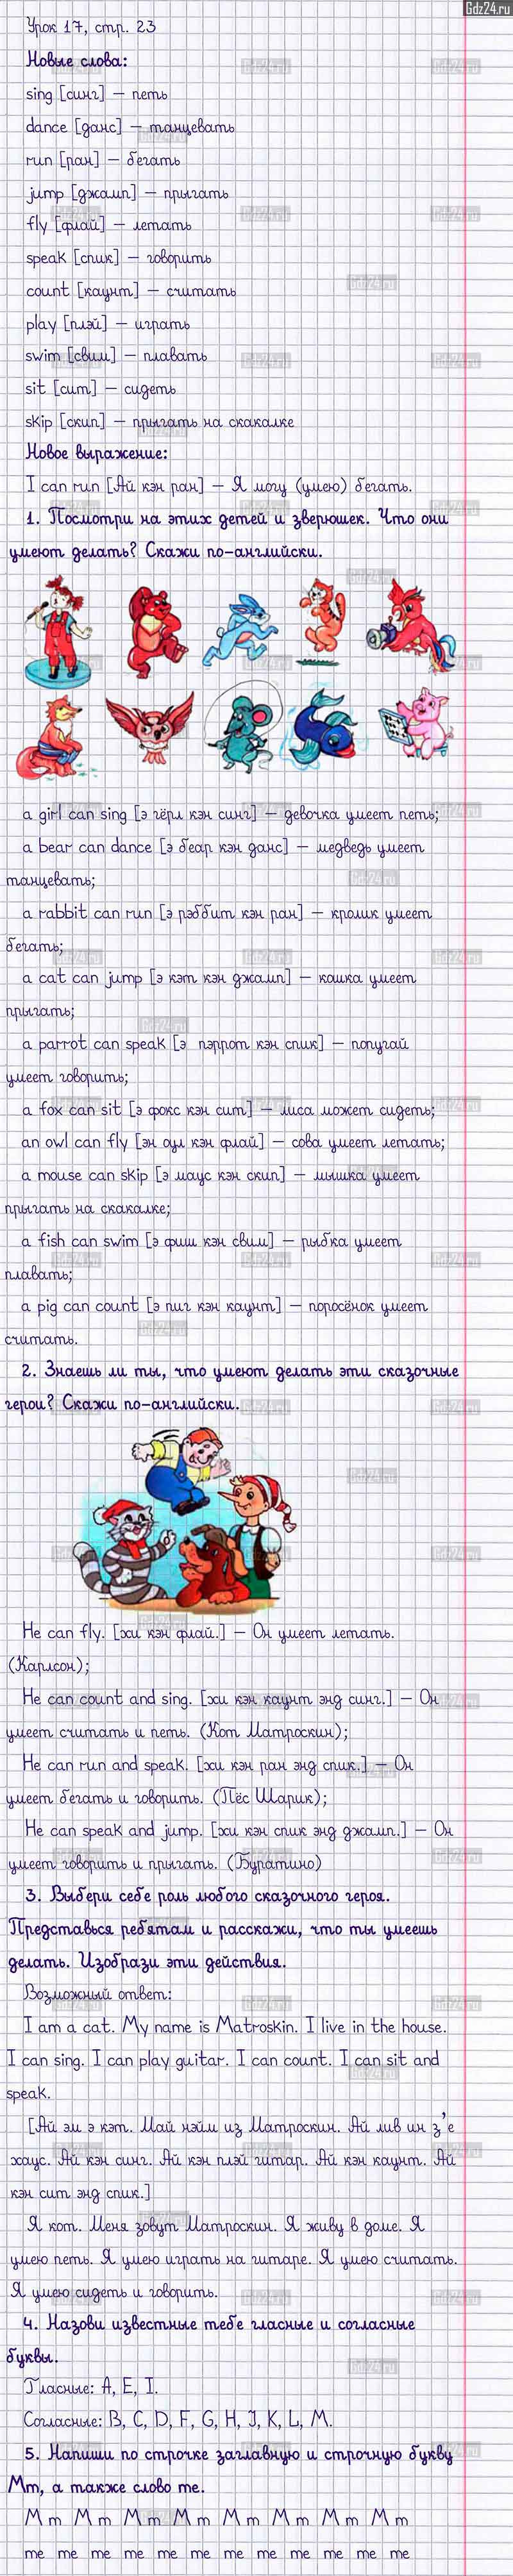 Gdz24.ru
Урок 17, стр. 23
Новые слова:
sing [синг] — петь
dance [данс] — танцевать
run [ран] — бегать
jump [джамп] — прыгать
fly [флай] — летать
speak [спик] — говорить
count [каунт] — считать
play [плэй] — играть
swim [свим] — плавать
sit [сит] — сидеть
skip [скип] — прыгать на скакалке
Новое выражение:
I can run [Ай кэн ран] — Я могу (умею) бегать.
1. Посмотри на этих детей и зверюшек. Что они
умеют делать? Скажи по-английски.
a girl can sing [э гёрл кэн синг] — девочка умеет петь;
a bear can dance [э беар кэн данс] — медведь умеет
танцевать;
a rabbit can run [э рэббит кэн ран] — кролик умеет
бегать;
a cat can jump [э кэт кэн джамп] — кошка умеет
прыгать;
a parrot can speak [э пэррот кэн спик] — попугай
умеет говорить;
a fox can sit [э фокс кэн сит] — лиса может сидеть;
an owl can fly [эн оул кэн флай] — сова умеет летать;
a mouse can skip [э маус кэн скип] — мышка умеет
прыгать на скакалке;
a fish can swim [э фиш кэн свим] — рыбка умеет
плавать;
a pig can count [э пиг кэн каунт] — поросёнок умеет
считать.
2. Знаешь ли ты, что умеют делать эти сказочные
герои? Скажи по-английски.
He can fly. [хи кэн флай.] — Он умеет летать.
(Карлсон);
He can count and sing. [хи кэн каунт энд синг.] — Он
умеет считать и петь. (Кот Матроскин);
He can run and speak. [хи кэн ран энд спик.] — Он
умеет бегать и говорить. (Пёс Шарик);
He can speak and jump. [хи кэн спик энд джамп.] — Он
умеет говорить и прыгать. (Буратино)
3. Выбери себе роль любого сказочного героя.
Представься ребятам и расскажи, что ты умеешь
делать. Изобрази эти действия.
Возможный ответ:
I am a cat. My name is Matroskin. I live in the house.
I can sing. I can play guitar. I can count. I can sit and
speak.
[Ай эм э кэт. Май нэйм из Матроскин. Ай лив ин з'е
хаус. Ай кэн синг. Ай кэн плэй гитар. Ай кэн каунт. Ай
кэн сит энд спик.]
Я кот. Меня зовут Матроскин. Я живу в доме. Я
умею петь. Я умею играть на гитаре. Я умею считать.
Я умею сидеть и говорить.
4. Назови известные тебе гласные и согласные
буквы.
Гласные: A, E, I.
Согласные: B, C, D, F, G, H, J, K, L, M.
5. Напиши по строчке заглавную и строчную букву
Mm, а также слово me.
M m M m M m M m M m M m M m M m
me me me me me me me me me me